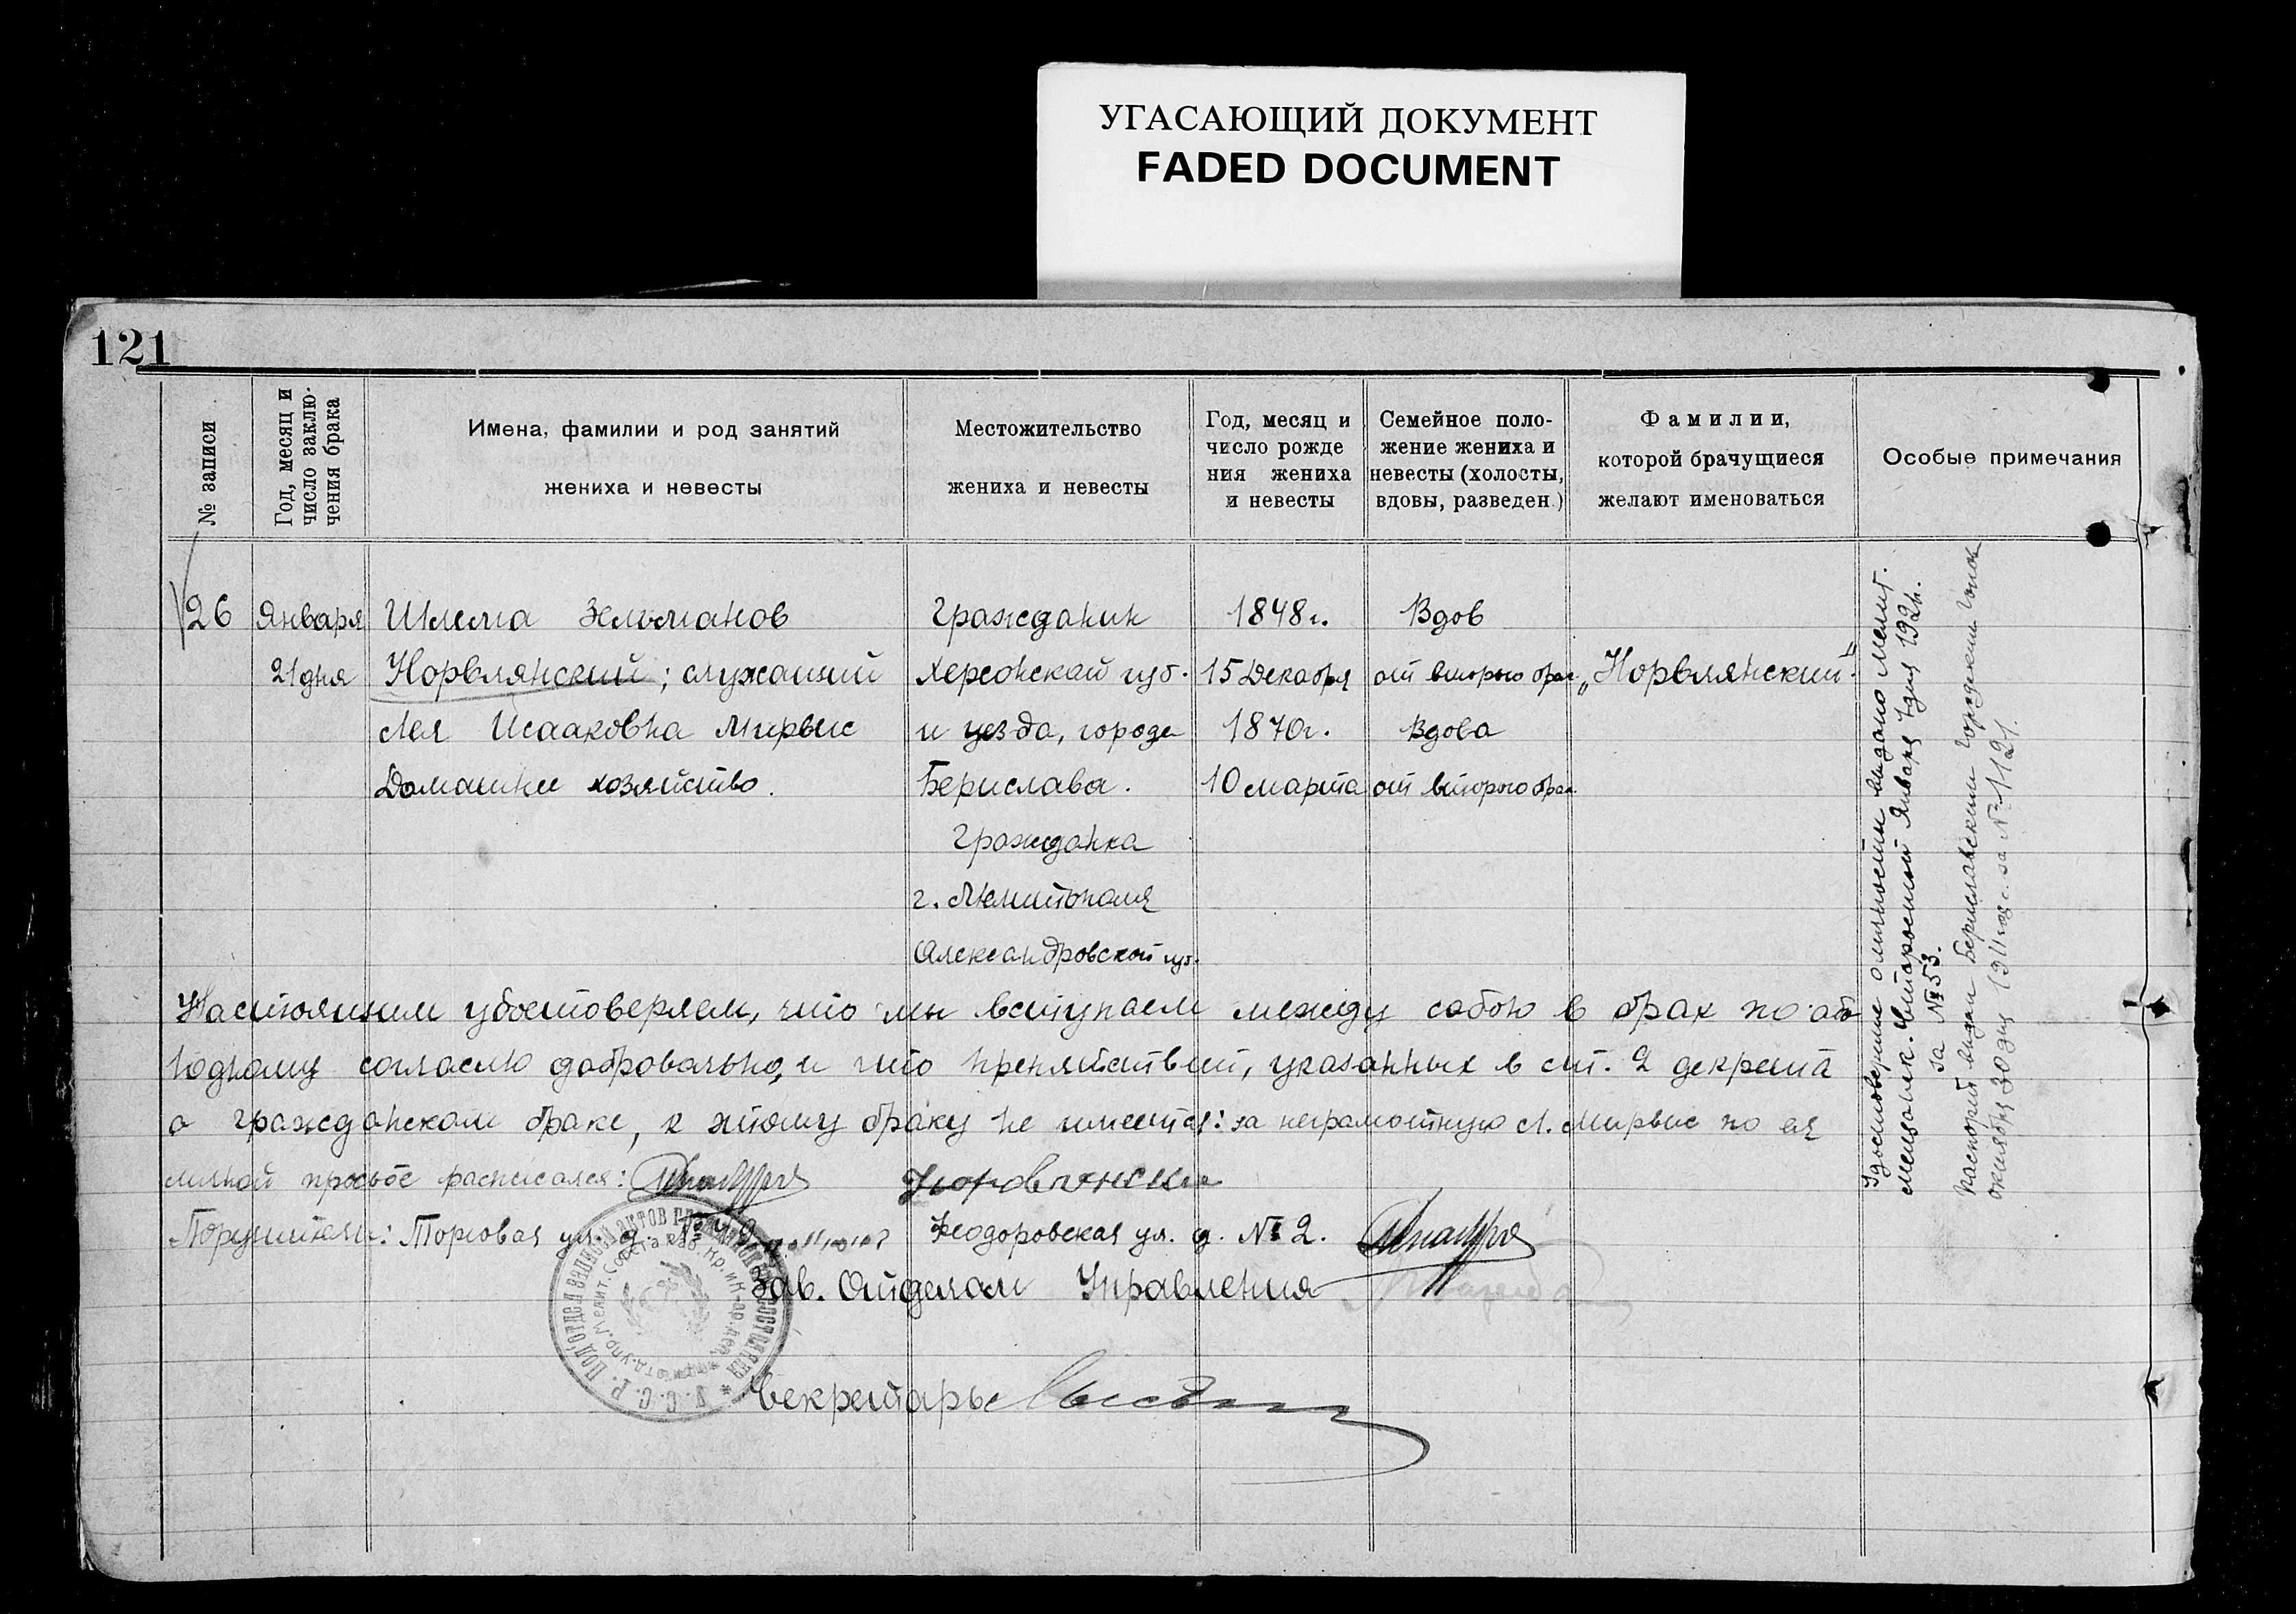 УГАСАЮЩИЙ ДОКУМЕНТ
FADED DOCUMENT
121
№ записи
Год, месяц и
число заклю-
чения брака
Имена, фамилии и род занятий
жениха и невесты
Местожительство
жениха и невесты
Год, месяц и
число рожде
ния жениха
и невесты
Семейное поло-
жение жениха и
невесты (холосты,
вдовы, разведен.)
Фамилии,
которой брачущиеся
желают именоваться
Особые примечания
26
Января
21 дня
Шлема Зельманов
Норвлянский; служащий
Лея Исааковна Мирвис
Домашнее хозяйство.
Гражданин
Херсонской губ.
и уезда, города
Берислава.
Гражданка
г. Мелитополя
Александровской губ.
1848 г.
15 Декабря
1870 г.
10 марта
Вдов
от второго брак.
Вдова
от второго брак.
„Норвлянский".
Удостоверение о личности выдано Мелит.
Января 7 дня 192 г.
за № 53.
Паспорт выдан Бериславским Городским
октября 30 дня 1911 года за № 1121.
Настоящим удостоверяем, что мы вступаем между собою в брак по обо-
юдному согласию добровольно, и что препятствий, указанных в ст. 2 декрета
о гражданском браке, к этому браку не имеется: за неграмотную Л. Мирвис по ея
личной просьбе расписался:
Поручители: Торговая ул. д.
Феодоровская ул. д. № 2.
Зав. Отделом Управления
Секретарь